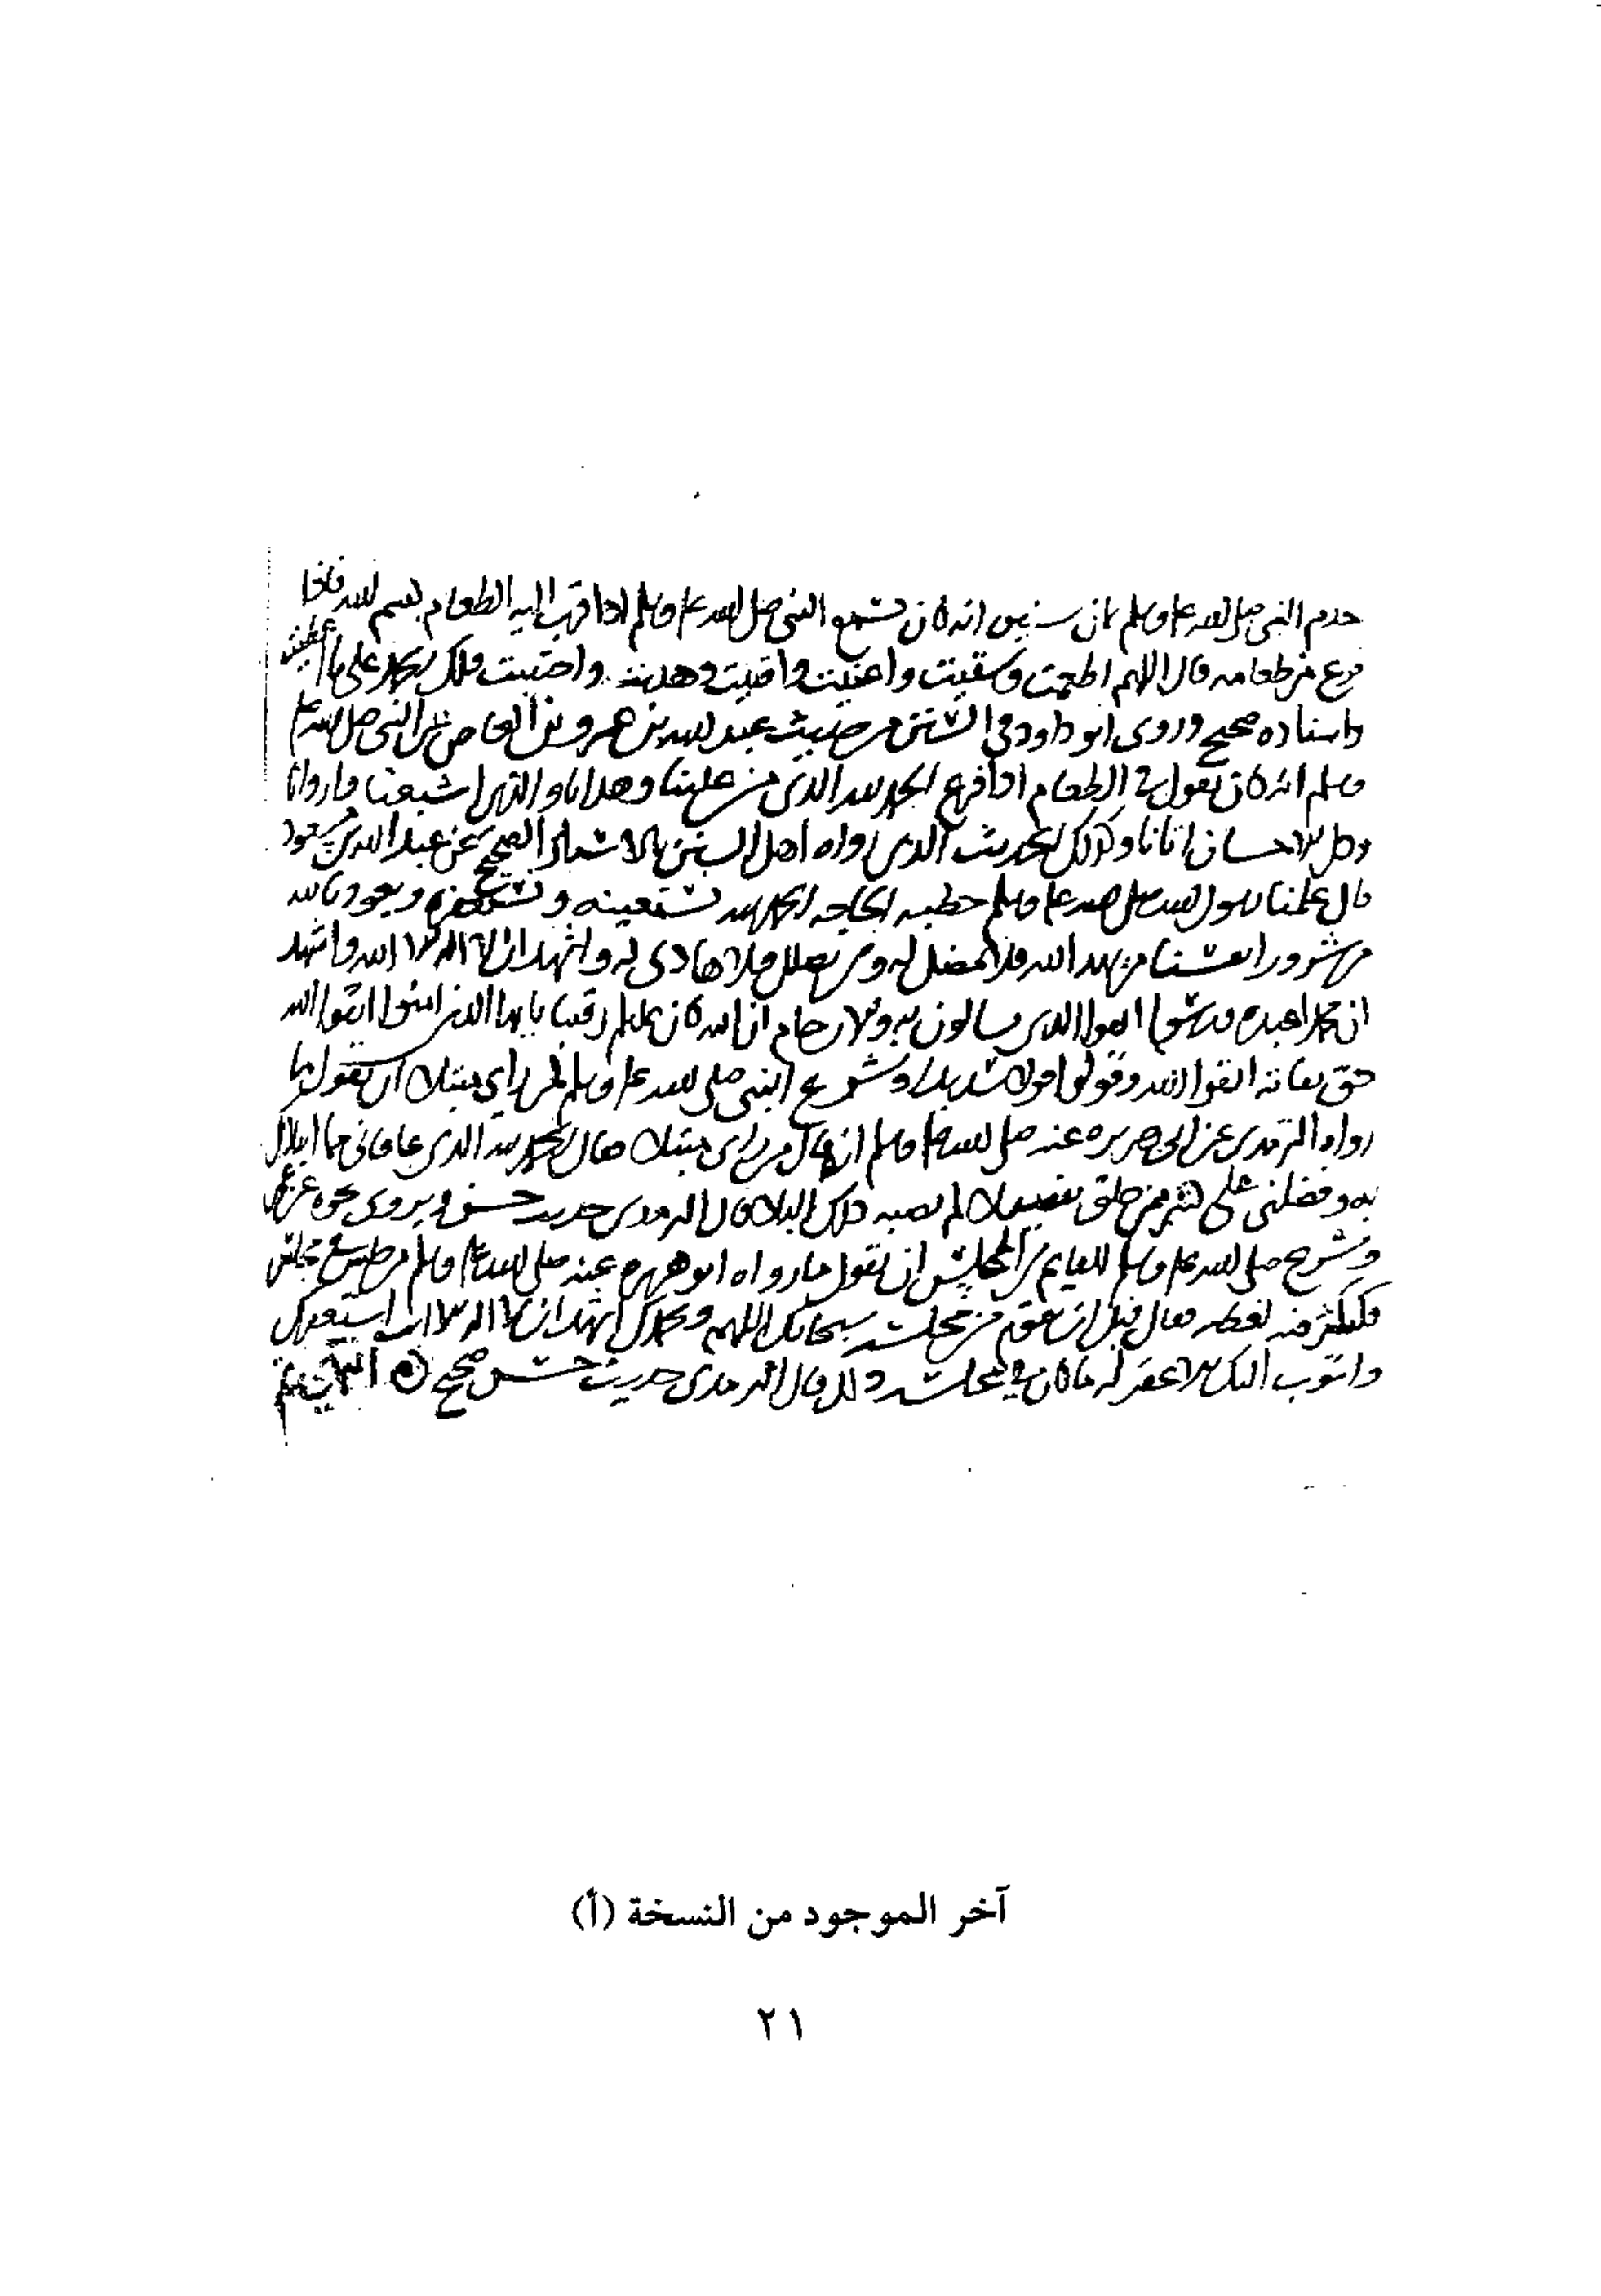 خدم النبي صلى الله عليه وسلم ثمان سنين انه كان يسمع النبي صلى الله عليه وسلم اذا قرب اليه الطعام بسم الله فاذا
فرغ من طعامه قال اللهم اطعمت وسقيت واغنيت واقنيت وهديت واحتبيت فلك الحمد على ما اعطيت
واسناده صحيح وروى ابو داود في السنن من حديث عبد الله بن عمرو بن العاص عن النبي صلى الله عليه
وسلم انه كان يقول في الطعام اذا فرغ الحمد لله الذي من علينا وهدانا والذي اشبعنا واروانا
وكل الاحسان اتانا وكذلك الحديث الذي رواه اهل السنن بالاسناد الصحيح عن عبد الله بن مسعود
قال علمنا رسول الله صلى الله عليه وسلم خطبه الحاجه الحمد لله نستعينه ونستغفره ونعوذ بالله
من شرور انفسنا من يهد الله فلا مضل له ومن يضلل فلا هادي له واشهد ان لا اله الا الله واشهد
ان محمدا عبده ورسوله اتقوا الله الذي تسالون به والارحام ان الله كان عليكم رقيبا يا ايها الذين امنوا اتقوا الله
حق تقاته اتقوا الله وقولوا قولا سديدا وشرع النبي صلى الله عليه وسلم لمن راى مبتلا ان يقول ما
رواه الترمذي عن ابي هريره عنه صلى الله عليه وسلم انه قال من راى مبتلا فقال الحمد لله الذي عافاني مما ابتلاك
به وفضلني على كثير ممن خلق تفضيلا لم يصبه ذلك البلاء قال الترمذي حديث حسن ويروى نحوه عن عمر
وشرع صلى الله عليه وسلم للقايم من المجلس ان يقول ما رواه ابو هريره عنه صلى الله عليه وسلم من جلس في مجلس
فكثر فيه لغطه فقال قبل ان يقوم من مجلسه سبحانك اللهم وبحمدك اشهد ان لا اله الا انت استغفرك
واتوب اليك الا غفر له ما كان في مجلسه ذلك قال الترمذي حديث حسن صحيح
آخر الموجود من النسخة (أ)
٢١